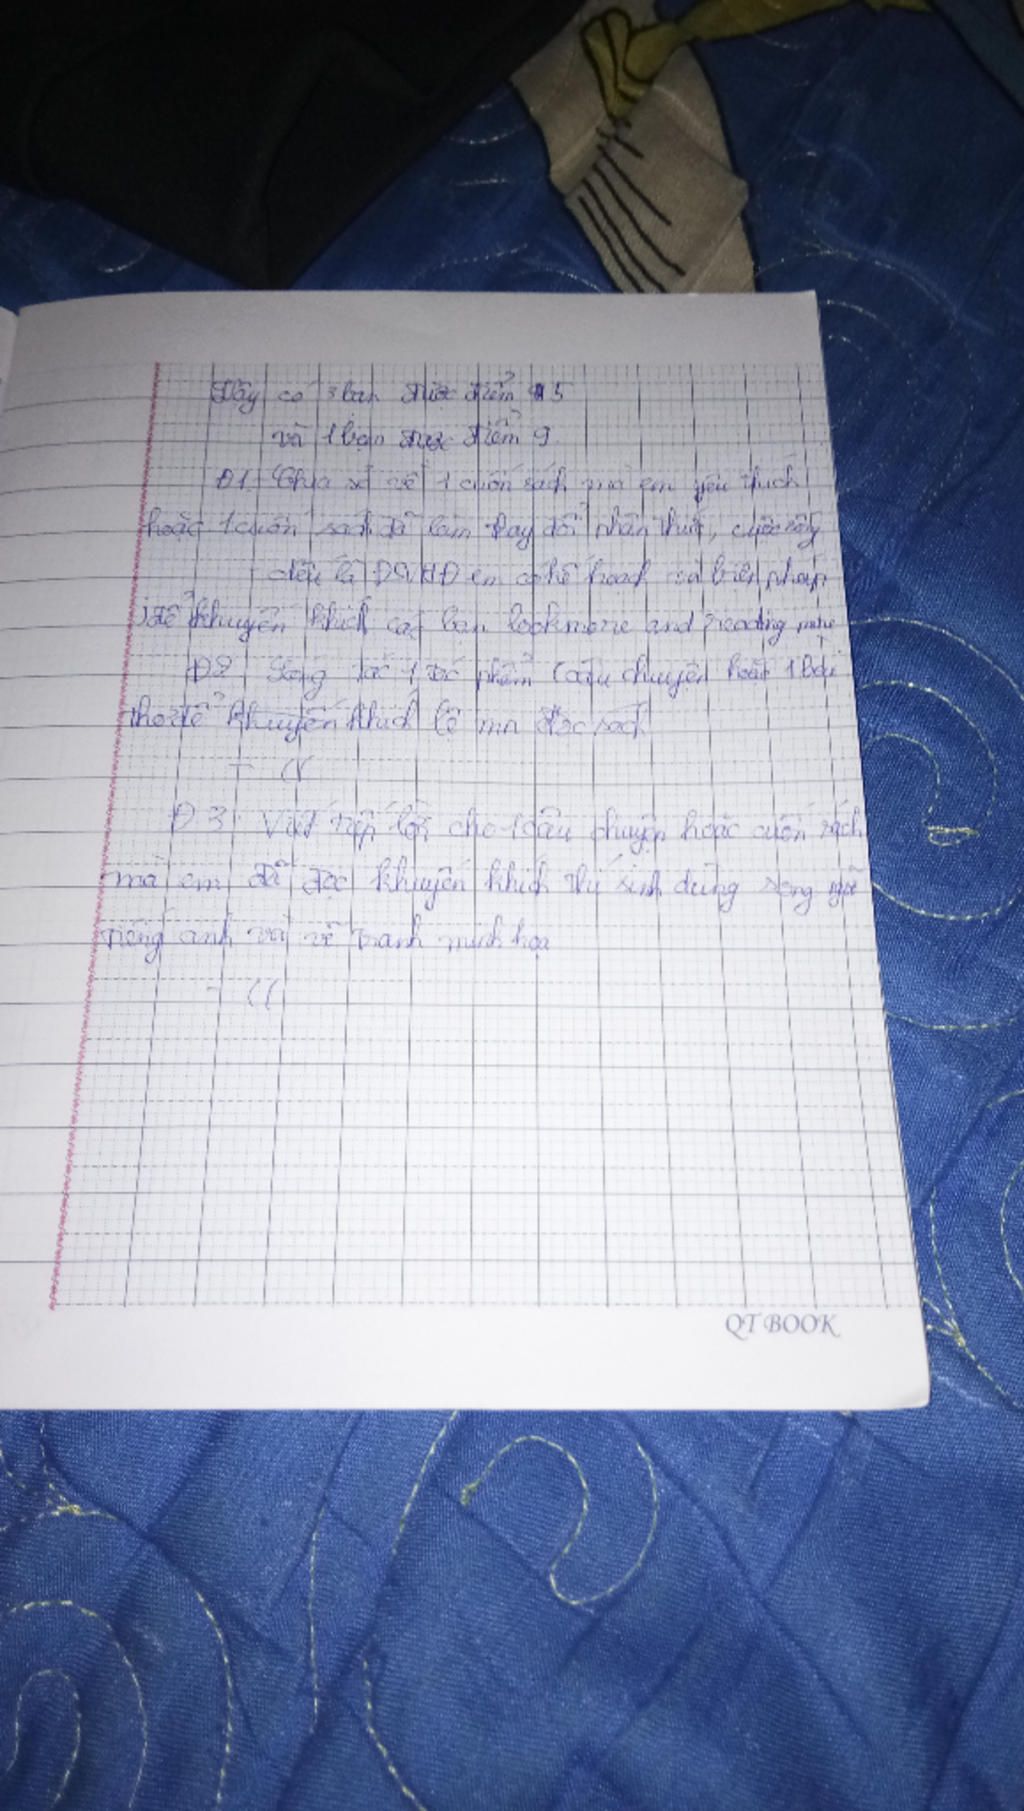 Đây có 3 bạn được điểm 5
và 1 bạn được điểm 9
Đ1: Chia sẻ về 1 cuốn sách mà em yêu thích
hoặc 1 cuốn sách đã làm thay đổi nhận thức, cuộc sống
- nếu là ĐSVHĐ em có kế hoạch và biện pháp
để khuyến khích các bạn and reading
Đ2: Sáng tác 1 tác phẩm (câu chuyện hoặc 1 bài
thơ để khuyến khích mn đọc sách
Đ 3: Viết tiếp lời cho 1 câu chuyện hoặc cuốn sách
mà em đã đọc khuyến khích thí sinh dùng song ngữ
tiếng anh và vẽ tranh minh họa
QT BOOK